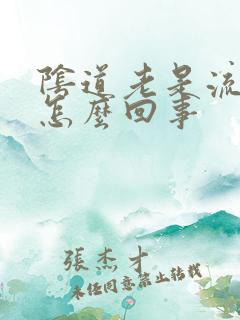 陰道老是流
怎麼回事
張杰才
未經同意禁止轉載